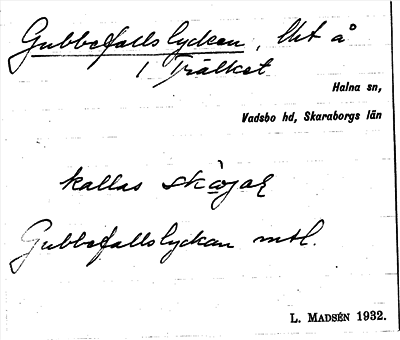 Gubbefallslyckan, lht å
1 Trälket
Halna sn,
Vadsbo hd, Skaraborgs län
kallas
Gubbefallslyckan mtl.
L. MADSÉN 1932.